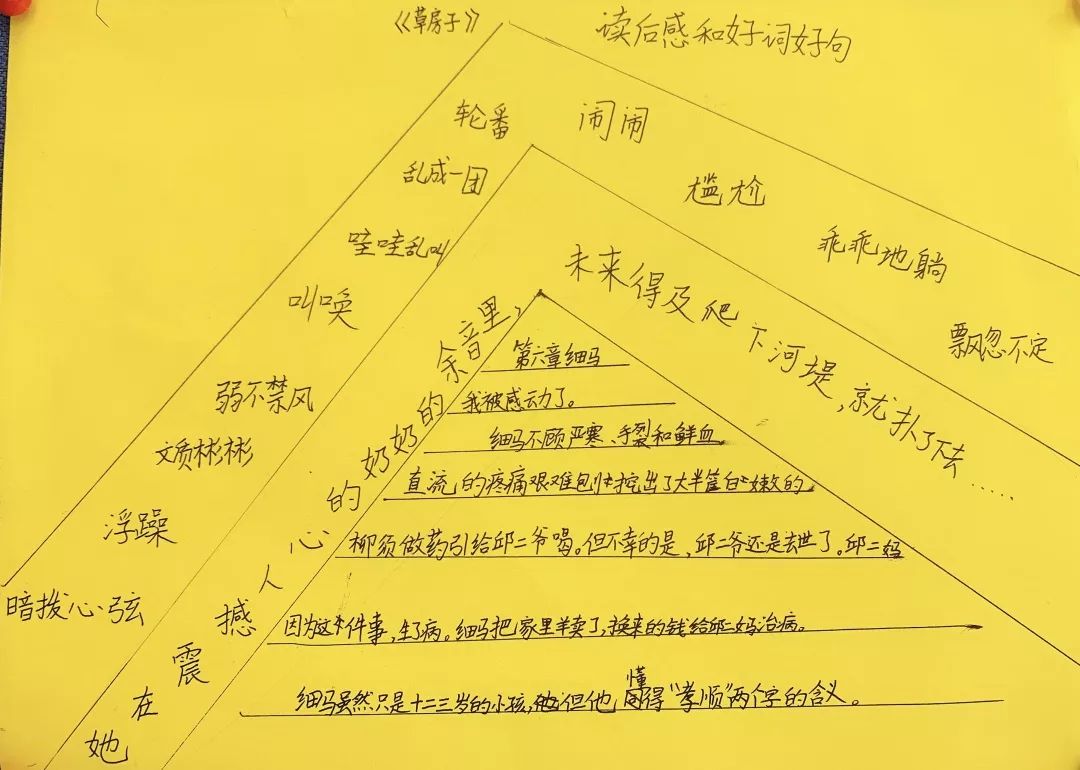 《草房子》
读后感和好词好句
轮番
闹闹
乱成一团
尴尬
哇哇乱叫
乖乖地躺
叫唤
飘忽不定
弱不禁风
文质彬彬
浮躁
暗拨心弦
她在震撼人心的奶奶的余音里，
未来得及爬下河堤，就扑了下去……
第六章细马
我被感动了。
细马不顾严寒、手裂和鲜血
直流的疼痛艰难刨挖出了大半筐白嫩的
柳须做药引给邱二爷喝。但不幸的是，邱二爷还是去世了。邱二妈
因为这件事，生了病。细马把家里羊卖了，换来的钱给邱二妈治病。
细马虽然只是十二三岁的小孩，但他懂得“孝顺”两个字的含义。